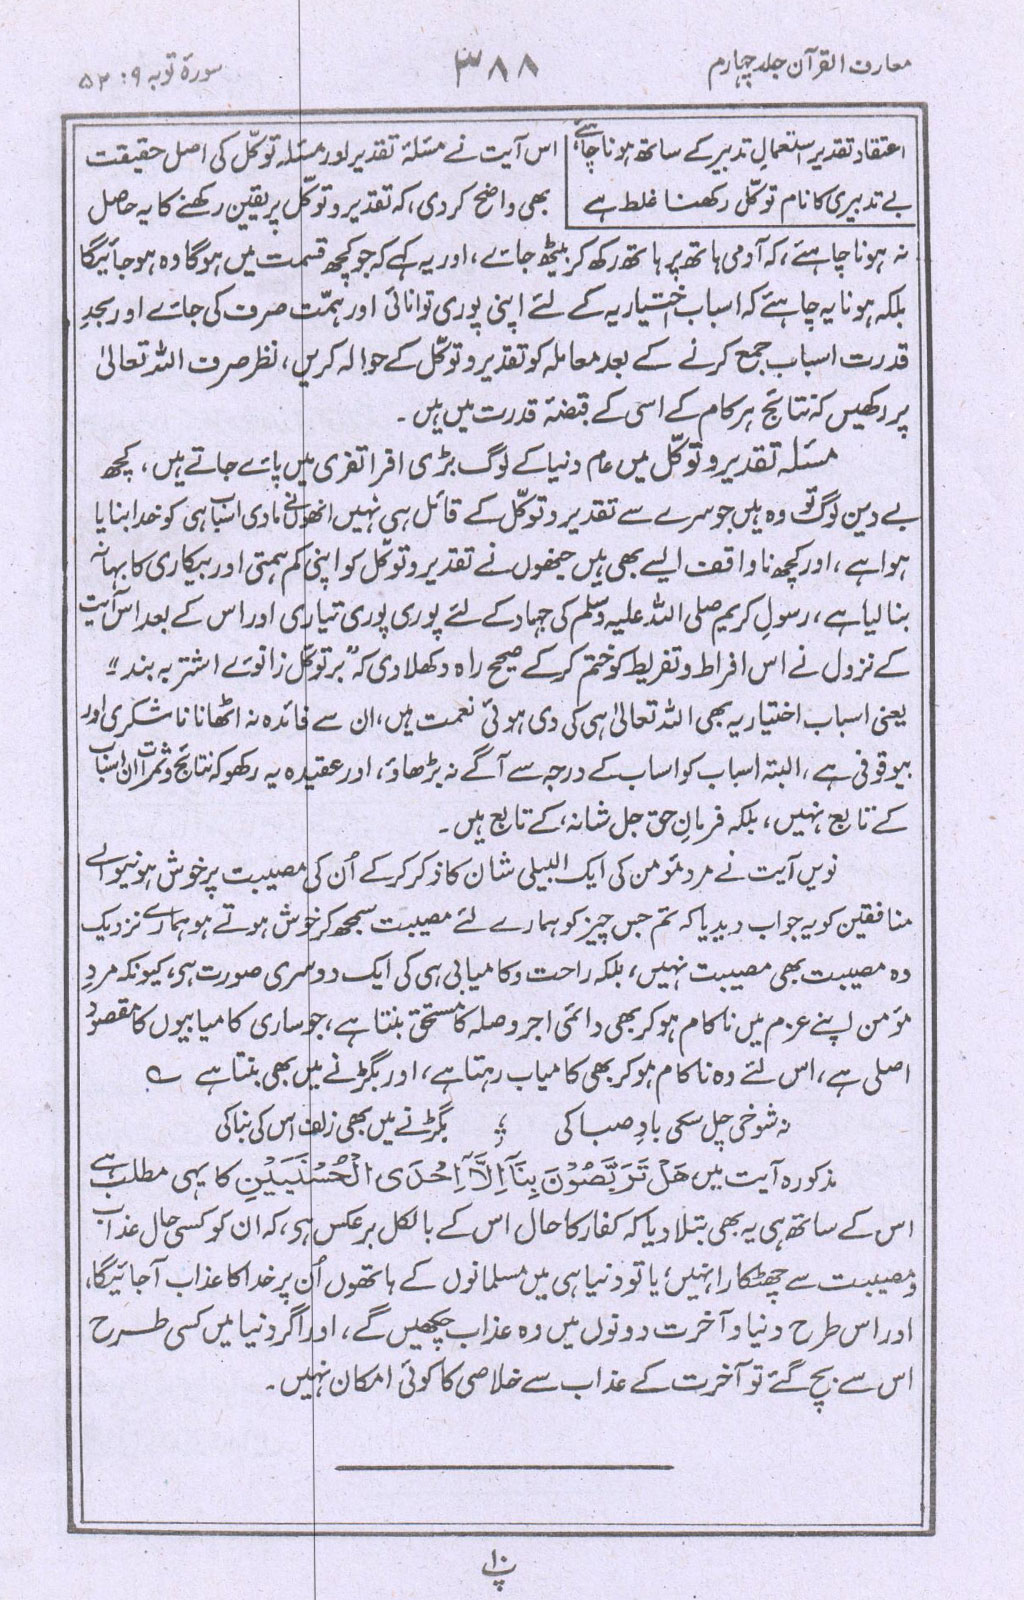 معارف القرآن جلد چہارم ۳۸۸ سورۂ توبہ ۹: ۵۲
اعتقاد تقدیر استعمالِ تدبیر کے ساتھ ہونا چاہئے،
بے تدبیری کا نام توکل رکھنا غلط ہے
اس آیت نے مسئلۂ تقدیر اور مسئلہ توکّل کی اصل حقیقت
بھی واضح کر دی، کہ تقدیر و توکّل پر یقین رکھنے کا یہ حاصل
نہ ہونا چاہئے، کہ آدمی ہاتھ پر ہاتھ رکھ کر بیٹھ جائے، اور یہ کہے کہ جو کچھ قسمت میں ہوگا وہ ہو جائیگا
بلکہ ہونا یہ چاہئے کہ اسباب اختیاریہ کے لئے اپنی پوری توانائی اور ہمّت صرف کی جائے اور بجدِ
قدرت اسباب جمع کرنے کے بعد معاملہ کو تقدیر و توکّل کے حوالہ کریں، نظر صرف اللہ تعالیٰ
پر رکھیں کہ نتائج ہر کام کے اسی کے قبضۂ قدرت میں ہیں۔
مسئلہ تقدیر و توکّل میں عام دنیا کے لوگ بڑی افراتفری میں پائے جاتے ہیں، کچھ
بے دین لوگ تو وہ ہیں جو سرے سے تقدیر و توکّل کے قائل ہی نہیں انھوں نے مادی اسباب ہی کو خدا بنایا
ہوا ہے، اور کچھ ناواقف ایسے بھی ہیں جنھوں نے تقدیر و توکّل کو اپنی کم ہمتی اور بیکاری کا بہانہ
بنا لیا ہے، رسولِ کریم صلی اللہ علیہ وسلم کی جہاد کے لئے پوری پوری تیاری اور اس کے بعد اس آیت
کے نزول نے اس افراط و تفریط کو ختم کر کے صحیح راہ دکھلا دی کہ "بر توکّل زانوئے اشتر بہ بند"
یعنی اسباب اختیاریہ بھی اللہ تعالیٰ ہی کی دی ہوئی نعمت ہیں، ان سے فائدہ نہ اٹھانا ناشکری اور
بیوقوفی ہے، البتہ اسباب کو اساب کے درجہ سے آگے نہ بڑھاؤ، اور عقیدہ یہ رکھو کہ نتائج و ثمرات ان اسباب
کے تابع نہیں، بلکہ فرمانِ حق جل شانہٗ کے تابع ہیں۔
نویں آیت نے مرد مؤمن کی ایک البیلی شان کا ذکر کر کے اُن کی مصیبت پر خوش ہونیوالے
منافقین کو یہ جواب دیدیا کہ تم جس چیز کو ہمارے لئے مصیبت سمجھ کر خوش ہوتے ہو ہمارے نزدیک
وہ مصیبت بھی مصیبت نہیں، بلکہ راحت و کامیابی ہی کی ایک دوسری صورت ہی، کیونکہ مردِ
مؤمن اپنے عزم میں ناکام ہو کر بھی دائمی اجر و صلہ کا مستحق بنتا ہے، جو ساری کامیابیوں کا مقصودِ
اصلی ہے، اس لئے وہ ناکام ہو کر بھی کامیاب رہتا ہے، اور بگڑنے میں بھی بنتا ہے ؎
نہ شوخی چل سکی بادِ صبا کی ؛ بگڑنے میں بھی زلف اس کی بنا کی
مذکورہ آیت میں ہَلْ تَرَبَّصُوْنَ بِنَآ اِلَّآ اِحْدَی الْحُسْنَیَیْنِ کا یہی مطلب ہے
اس کے ساتھ ہی یہ بھی بتلا دیا کہ کفار کا حال اس کے بالکل برعکس ہی، کہ ان کو کسی حال عذاب
و مصیبت سے چھٹکارا نہیں، یا تو دنیا ہی میں مسلمانوں کے ہاتھوں اُن پر خدا کا عذاب آجائیگا،
اور اس طرح دنیا و آخرت دونوں میں وہ عذاب چکھیں گے، اور اگر دنیا میں کسی طرح
اس سے بچ گئے تو آخرت کے عذاب سے خلاصی کا کوئی امکان نہیں۔